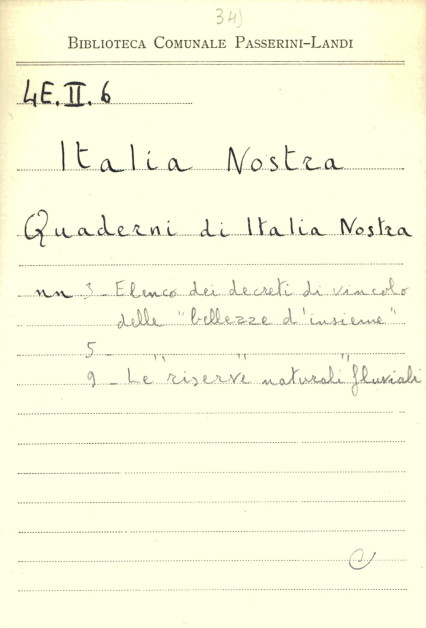 34)
BIBLIOTECA COMUNALE PASSERINI-LANDI
4E.II.6
Italia Nostra
Quaderni di Italia Nostra
nn 3 - Elenco dei decreti di vincolo
delle "bellezze d'insieme"
5 - " " "
9 - Le riserve naturali fluviali